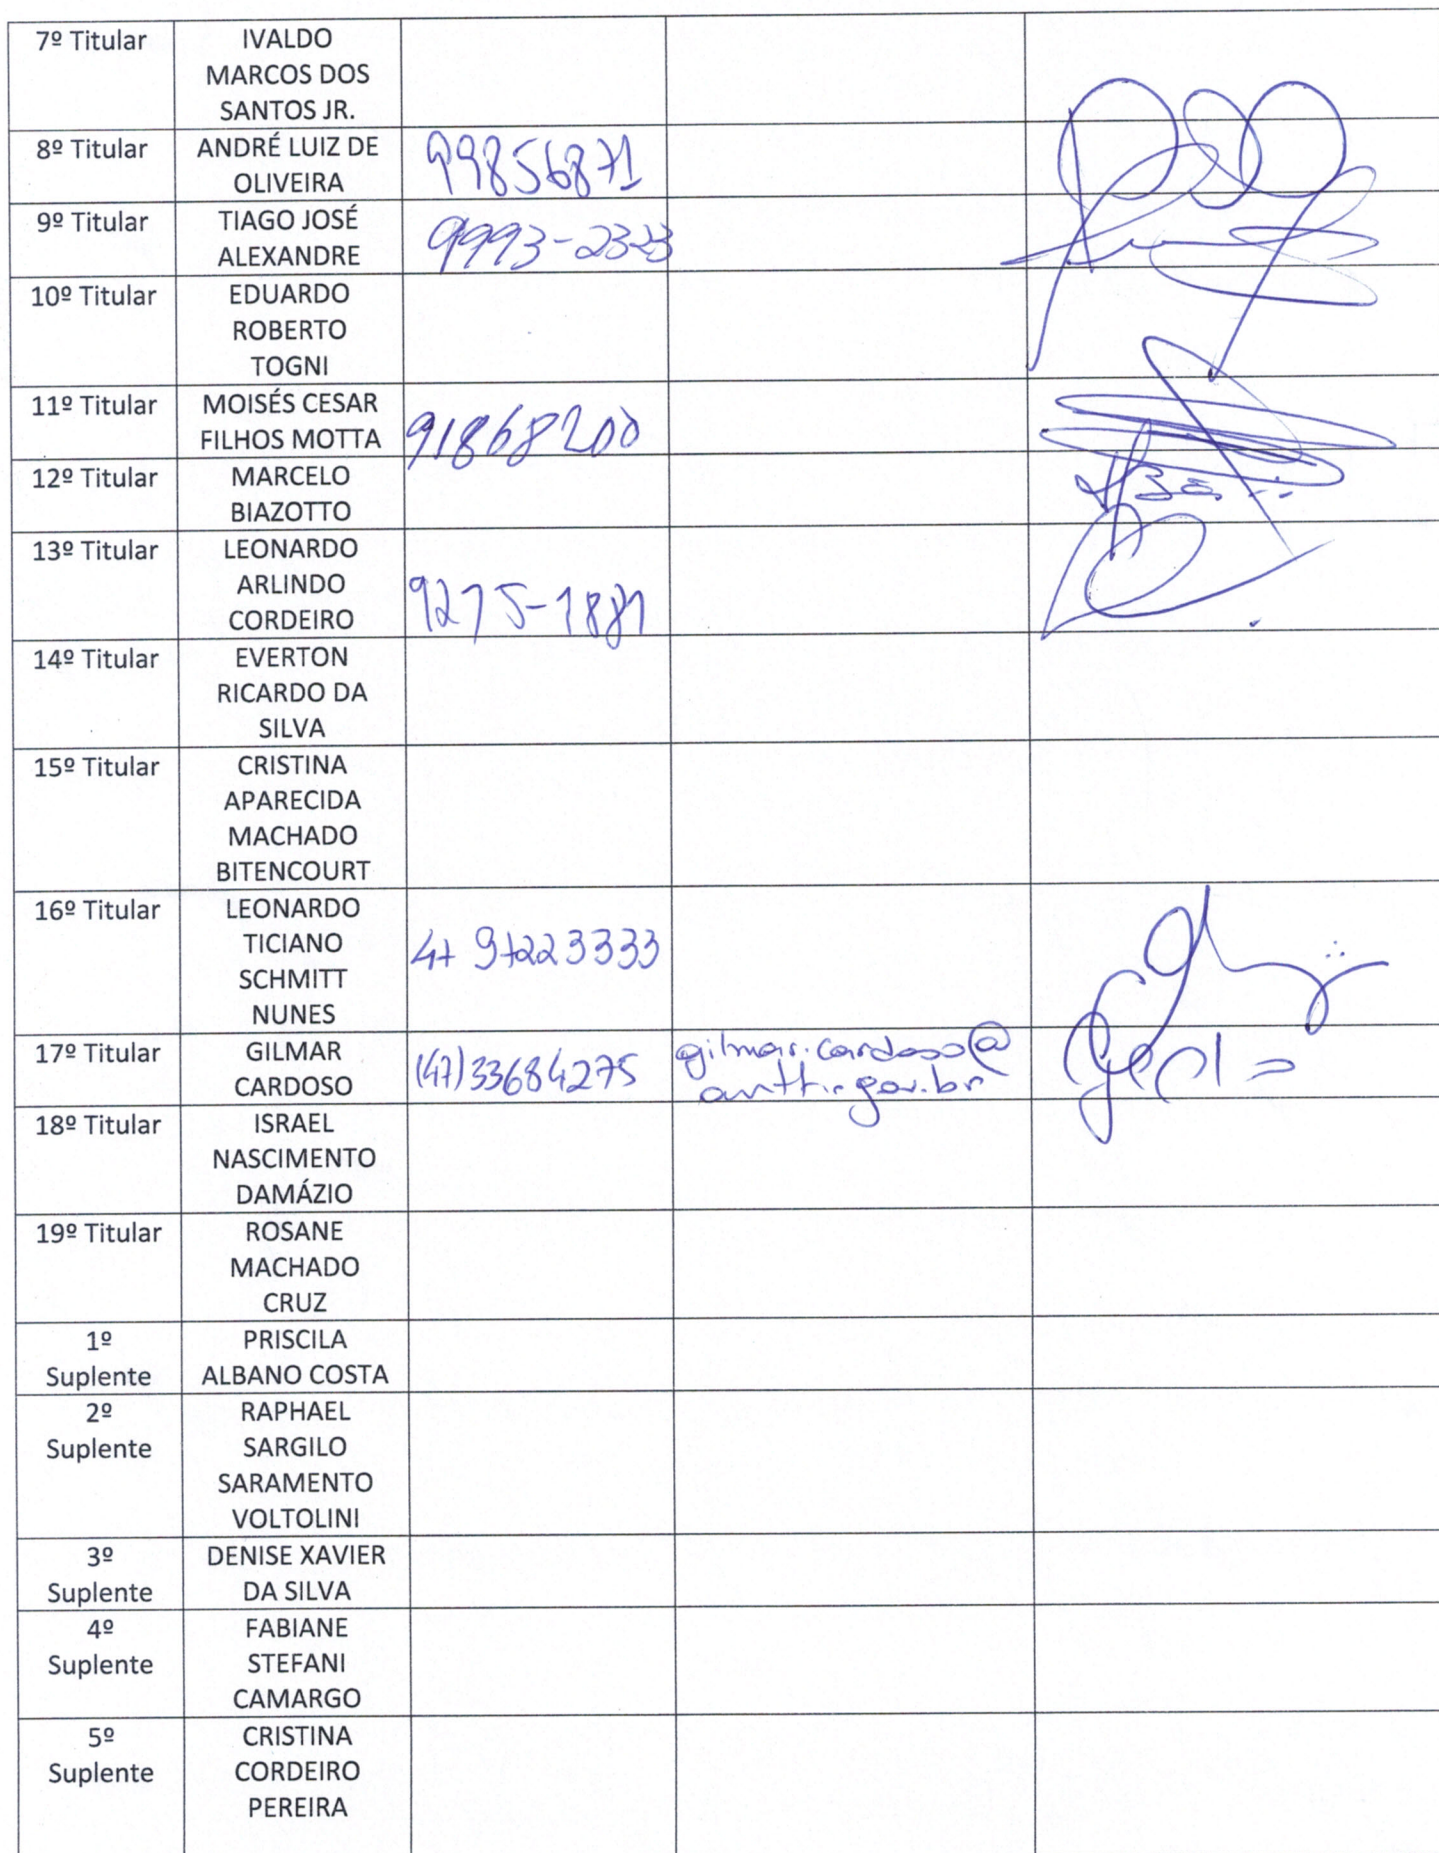 7º Titular
IVALDO
MARCOS DOS
SANTOS JR.
8º Titular
ANDRÉ LUIZ DE
OLIVEIRA
99856871
9º Titular
TIAGO JOSÉ
ALEXANDRE
9993-2323
10º Titular
EDUARDO
ROBERTO
TOGNI
11º Titular
MOISÉS CESAR
FILHOS MOTTA
91868200
12º Titular
MARCELO
BIAZOTTO
13º Titular
LEONARDO
ARLINDO
CORDEIRO
9275-1881
14º Titular
EVERTON
RICARDO DA
SILVA
15º Titular
CRISTINA
APARECIDA
MACHADO
BITENCOURT
16º Titular
LEONARDO
TICIANO
SCHMITT
NUNES
47 97223333
17º Titular
GILMAR
CARDOSO
(47) 33684275
gilmar.cardoso@
antt.gov.br
18º Titular
ISRAEL
NASCIMENTO
DAMÁZIO
19º Titular
ROSANE
MACHADO
CRUZ
1º
Suplente
PRISCILA
ALBANO COSTA
2º
Suplente
RAPHAEL
SARGILO
SARAMENTO
VOLTOLINI
3º
Suplente
DENISE XAVIER
DA SILVA
4º
Suplente
FABIANE
STEFANI
CAMARGO
5º
Suplente
CRISTINA
CORDEIRO
PEREIRA